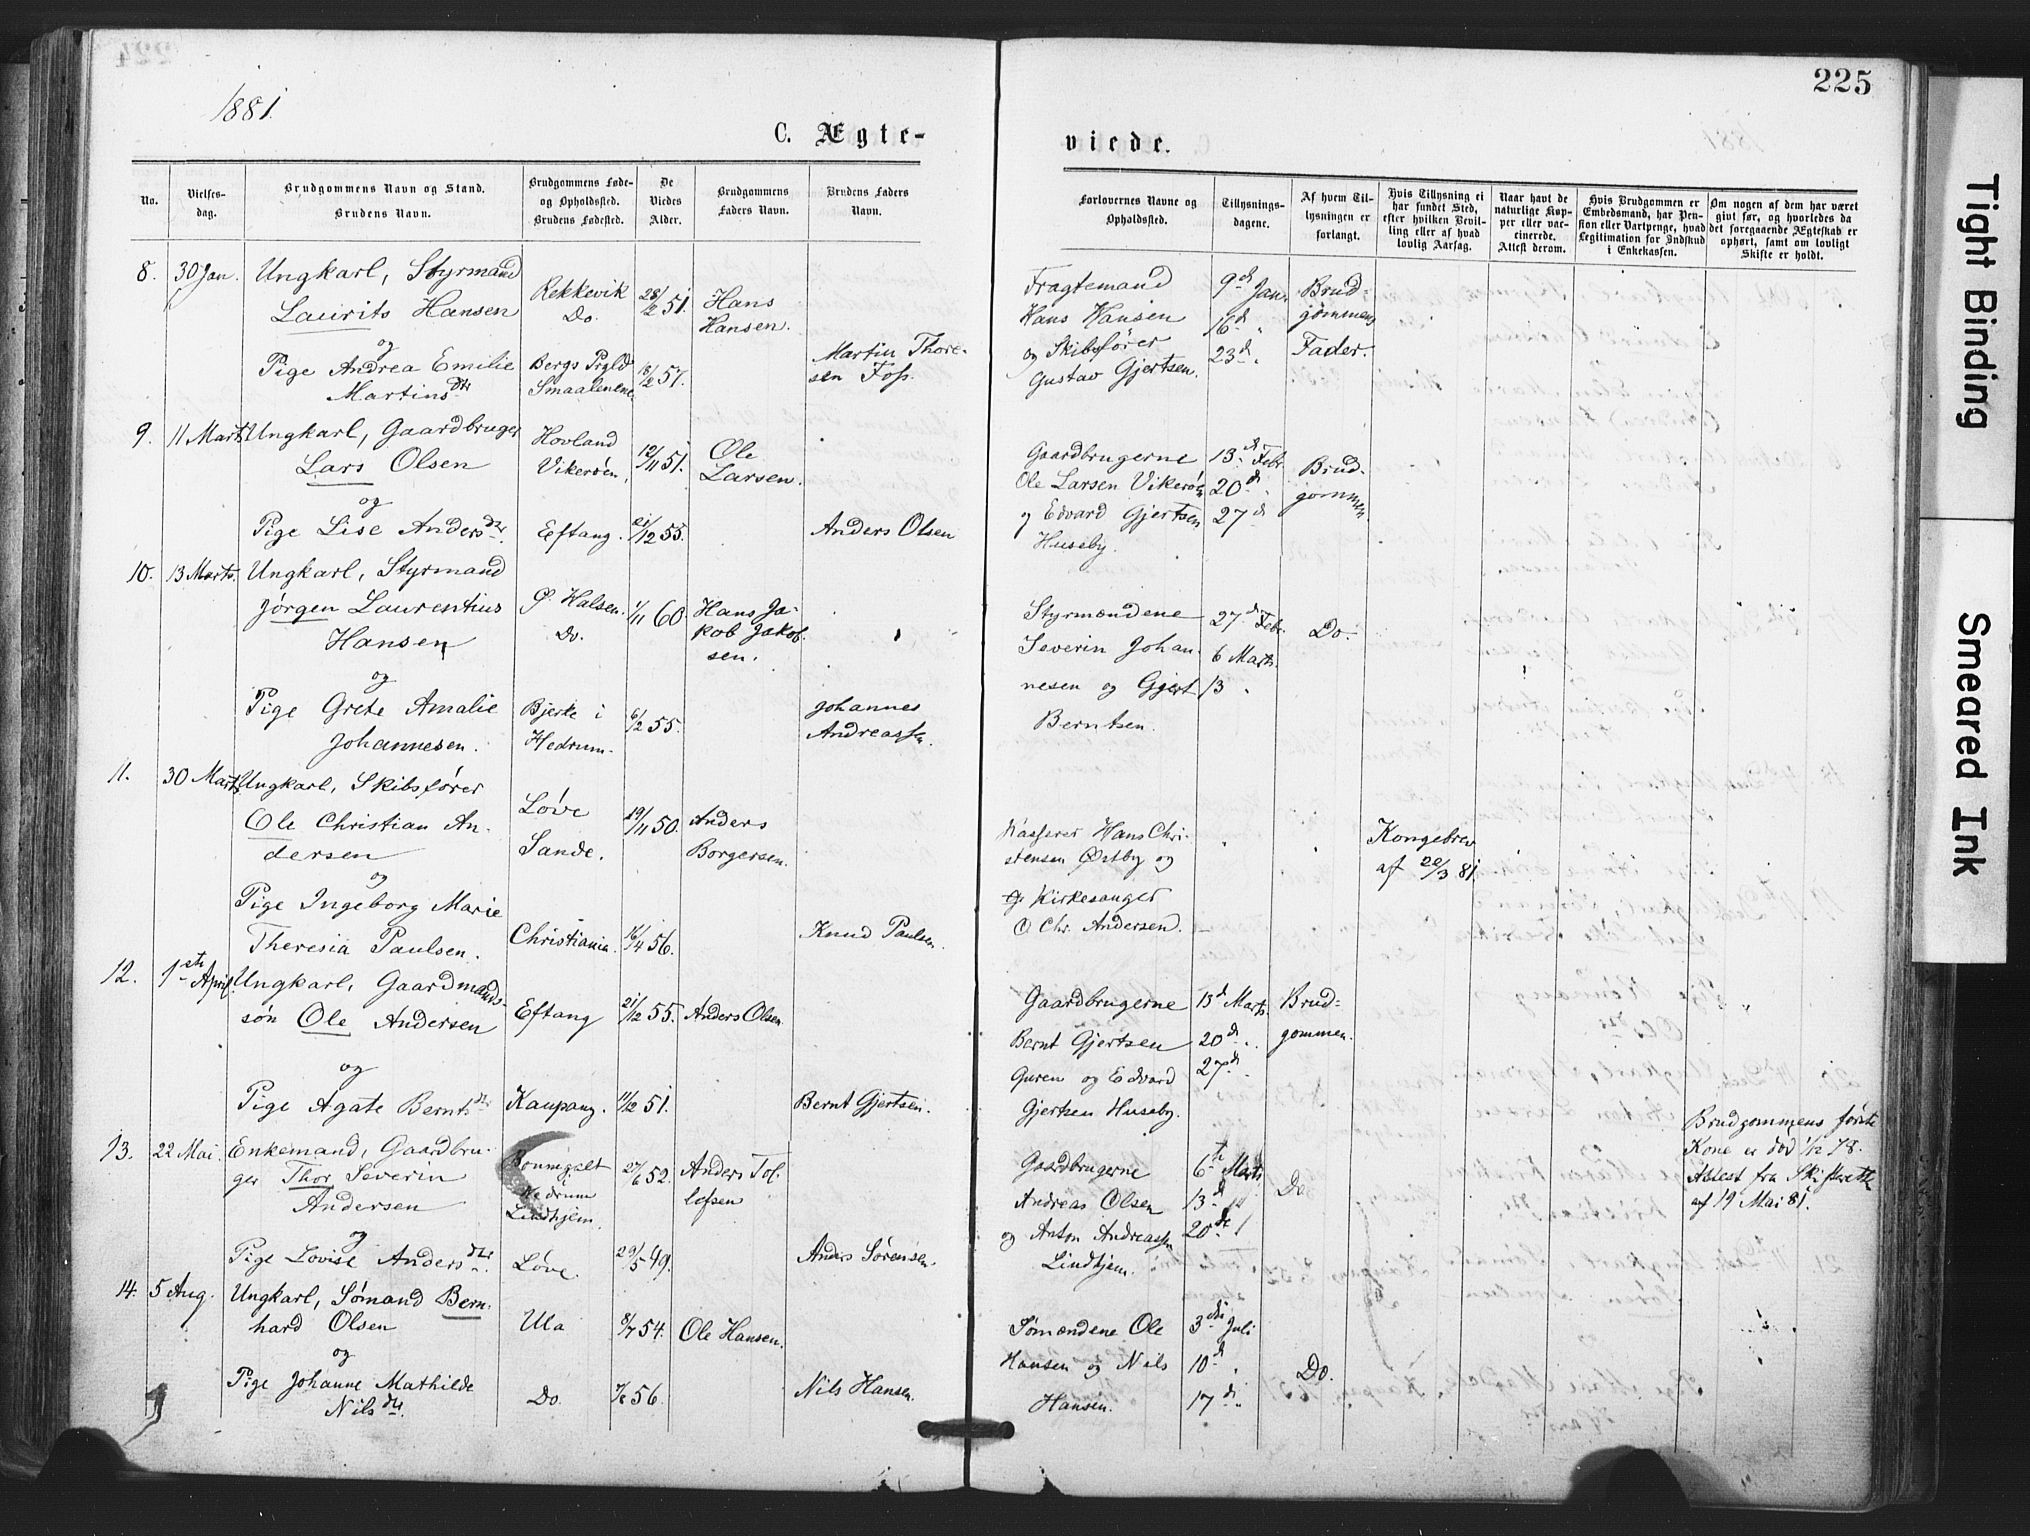 225
1881.
C. Ægte-
viede.
No.
Vielses-
dag.
Brudgommens Navn og Stand.
Brudens Navn.
Brudgommens Føde-
og Opholdssted.
Brudens Fødested.
De
Viedes
Alder.
Brudgommens
Faders Navn.
Brudens Faders
Navn.
Forlovernes Navne og
Opholdssted.
Tillysnings-
dagene.
Af hvem Til-
lysningen er
forlangt.
Hvis Tillysning ei
har fundet Sted,
efter hvilken Bevil-
ling eller af hvad
lovlig Aarsag.
Naar havt de
naturlige Kop-
per eller vac-
cinerede.
Attest derom.
Hvis Brudgommen er
Embedsmand, har Pen-
sion eller Vartpenge, hvad
Legitimation for Indskud
i Enkekassen.
Om nogen af dem har været
givt før, og hvorledes da
det foregaaende Ægteskab er
ophørt, samt om lovligt
Skifte er holdt.
8. 30 Jan. Ungkarl, Styrmand
Laurits Hansen
og
Pige Andrea Emilie
Martinsdtr
Rekkevik
Do.
Bergs Prgld
Smaalenene
28/2 51.
18/2 57.
Hans
Hansen.
Martin Thore-
sen Foss.
Fragtemand
Hans Hansen
og Skibsfører
Gustav Gjertsen.
9de Jan.
16d "
23d "
Brud-
gommens
Fader.
9. 11 Marts Ungkarl, Gaardbruger
Lars Olsen
og
Pige Lise Andersdtr.
Hovland
Vikerøen.
Eftang.
12/11 51.
21/12 55.
Ole
Larsen.
Anders Olsen
Gaardbrugerne
Ole Larsen Vikerøn
og Edvard Gjertsen
Huseby.
13d Febr.
20d "
27d
Brud-
gommen.
10. 13 Marts. Ungkarl, Styrmand
Jørgen Laurentius
Hansen
og
Pige Grete Amalie
Johannesen.
Ø. Halsen.
Do.
Bjerke i
Hedrum.
1/11 60.
6/2 55.
Hans Ja-
kob Jakob-
sen.
Johannes
Andreassen.
Styrmændene
Severin Johan-
nesen og Gjert
Berntsen.
27d Febr.
6 Marts.
13 "
Do.
11. 30 Marts Ungkarl, Skibsfører
Ole Christian An-
dersen
og
Pige Ingeborg Marie
Theresia Paulsen.
Løve
Sande.
Christiania.
19/11 50.
16/4 56.
Anders
Borgersen.
Knud Paulsen.
Kasserer Hans Chri-
stensen Østby og
Kirkesanger
O Chr. Andersen.
Kongebrev
af 22/3 81.
12. 1ste April. Ungkarl, Gaardmands-
søn Ole Andersen
og
Pige Agate Berntsdtr
Eftang
Kaupang.
21/12 55.
11/12 51.
Anders Olsen
Bernt Gjertsen.
Gaardbrugerne
Bernt Gjertsen
Guren og Edvard
Gjertsen Huseby.
13d Marts.
20d "
27d "
Brud-
gommen.
13. 22 Mai. Enkemand, Gaardbru-
ger Thor Severin
Andersen
og
Pige Lovise Andersdtr.
i
Hedrum
Lindhjem.
Løve
27/6 52.
29/5 49.
Anders Tol-
lofsen
Anders Sørensen.
Gaardbrugerne
Andreas Olsen
og Anton Andreassn
Lindhjem.
6te Marts
13d "
20de
Do.
Brudgommens første
Kone er død 1/12 78.
Attest fra Skifteretten
af 19 Mai 81.
14. 5 Aug. Ungkarl, Sømand Bern-
hard Olsen
og
Pige Johanne Mathilde
Nilsdtr.
Ula
Do.
8/7 54.
56.
Ole Hansen.
Nils Hansen.
Sømændene Ole
Hansen og Nils
Hansen.
3die Juli
10d "
17di "
Do.
Tight Binding
Smeared Ink